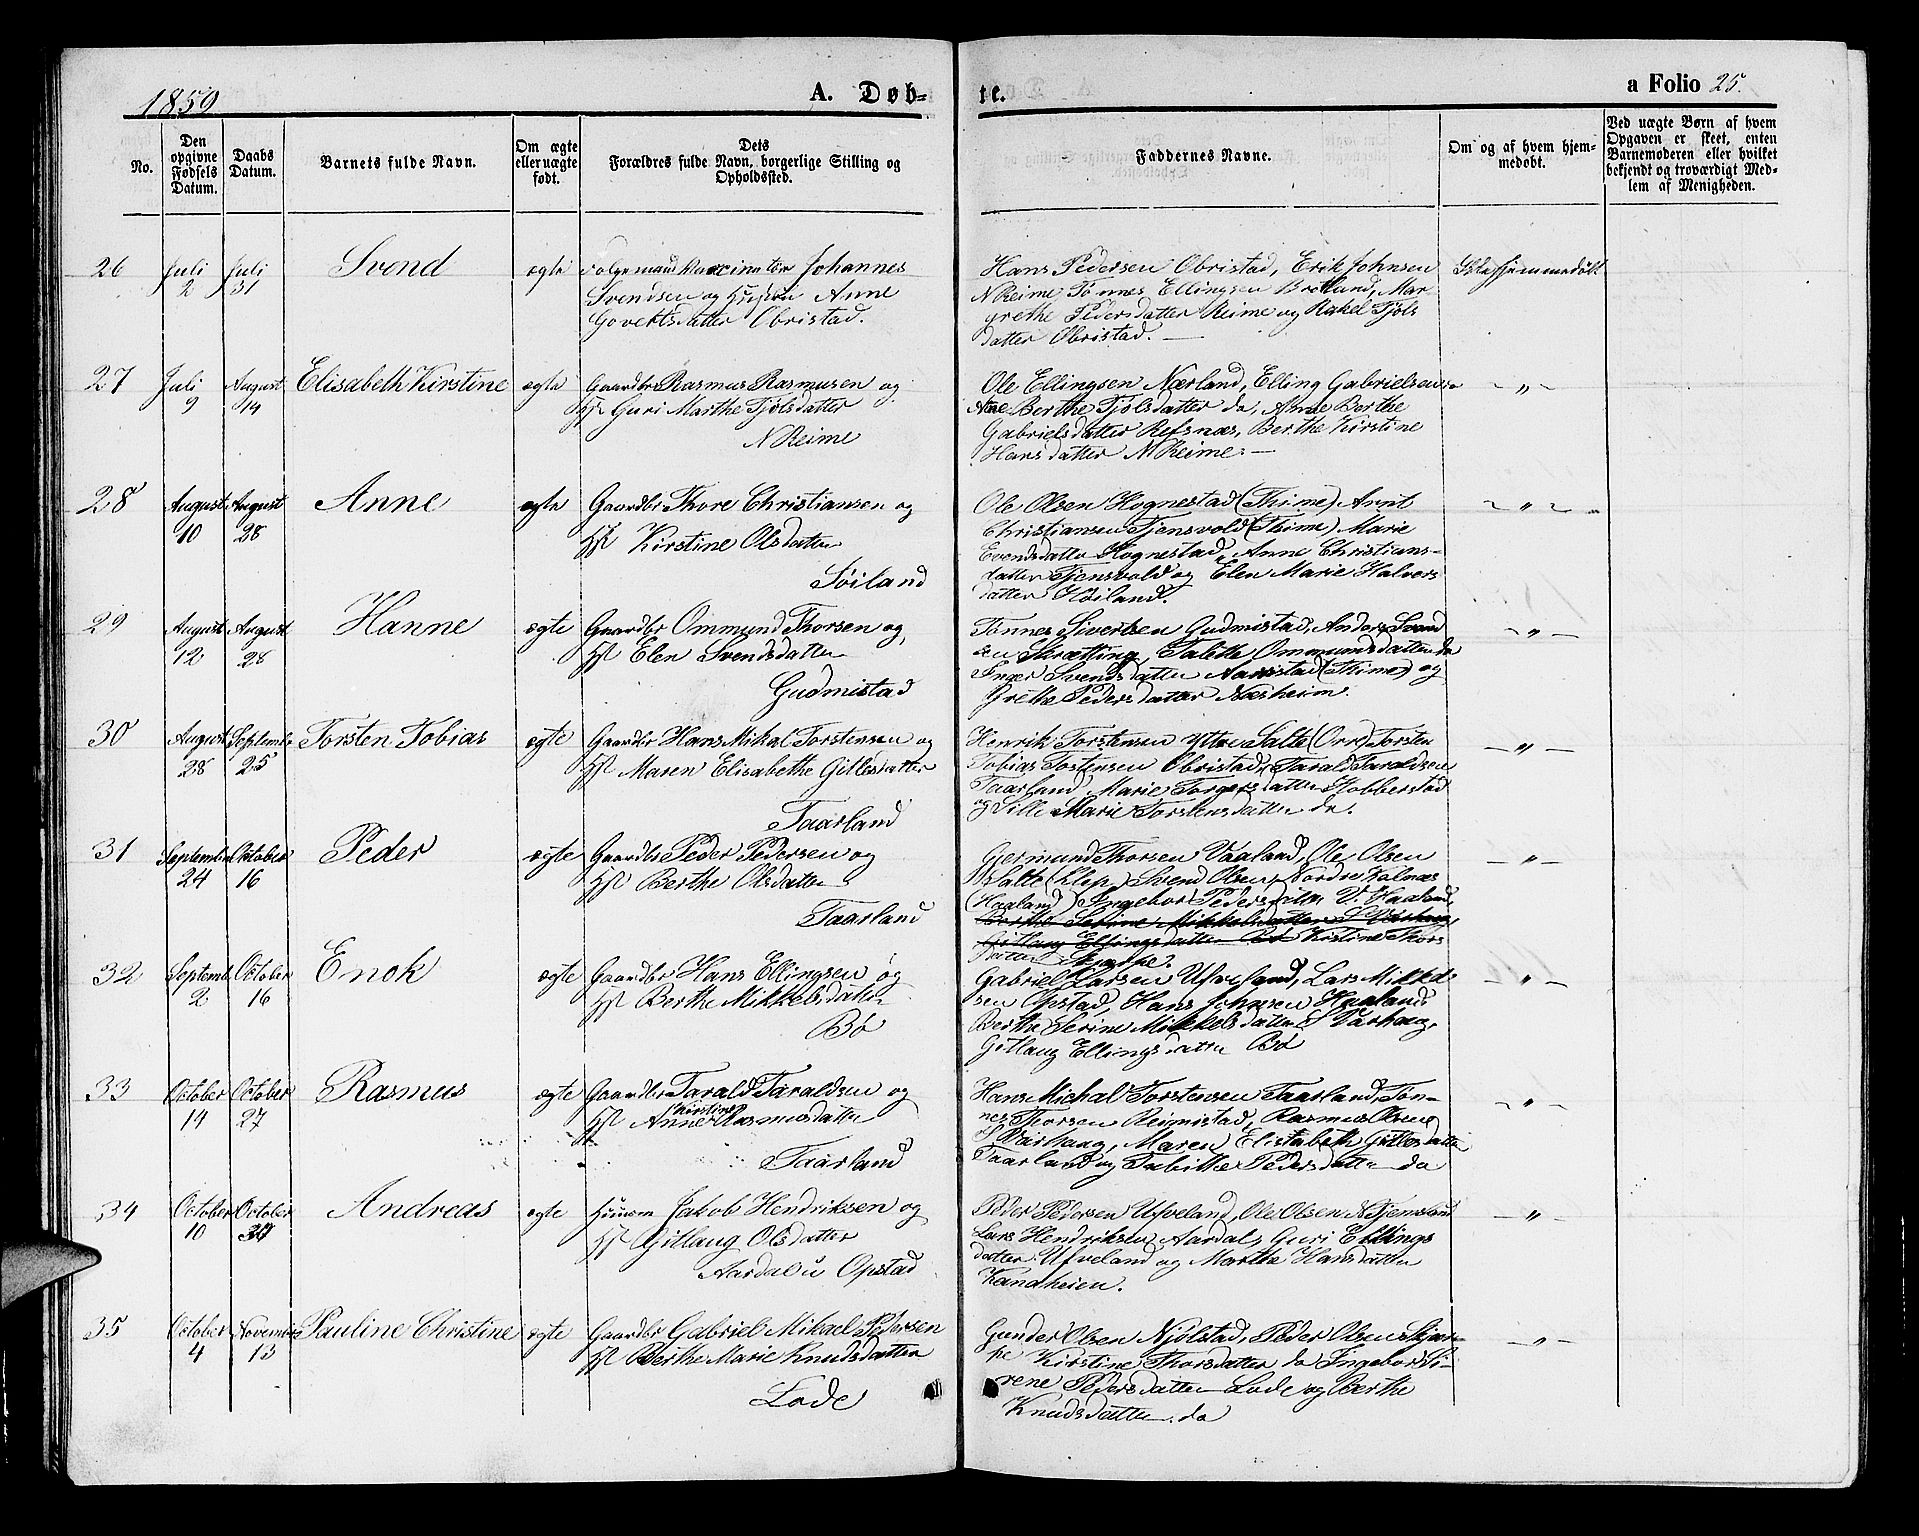 1859
A. Døb-
te.
a Folio 25.
No.
Den opgivne Fødsels Datum.
Daabs Datum.
Barnets fulde Navn.
Om ægte eller uægte født.
Dets Forældres fulde Navn, borgerlige Stilling og Opholdssted.
Faddernes Navne.
Om og af hvem hjemmedøbt.
Ved uægte Børn af hvem Opgaven er skeet, enten Barnemoderen eller hvilket bekjendt og troværdigt Medlem af Menigheden.
26 Juli 2 Juli 31 Svend ægte
Vaccinatør Johannes
Svendsen og Hustru Anne
Govertsdatter Obristad.
Hans Pedersen Obristad, Erik Johnsen
N Reime, Tønnes Ellingsen Bratland, Mar
grethe Pedersdatter Reime og Rakel Tjøls
datter Obristad. —
27 Juli 9 August 14 Elisabeth Kirstine ægte
Gaardbr Rasmus Rasmusen og
Hst Guri Marthe Tjølsdatter
N Reime
Ole Ellingsen Nærland, Elling Gabrielsen
Berthe Tjølsdatter do, Anne Berthe
Gabrielsdatter Refsnæs, Berthe Kirstine
Hansdatter N Reime. —
— " —
28 August 10 August 28 Anne ægte
Gaardbr Thore Christiansen og
Hst Kirstine Olsdatter
Søiland
Ole Olsen Hognestad (Thime) Arnt
Christiansen Tjensvold (Thime) Marie
Evendsdatter Hognestad, Anne Christians-
datter Tjensvold og Elen Marie Halvers
datter Høiland.
— " —
29 August 12 August 28 Hanne ægte
Gaardbr Ommund Thorsen og
Hst Elen Svendsdatter
Gudmistad
Tønnes Sivertsen Gudmistad, Anders Svend
sen Skrætting, Talette Ommundsdatter do
Inger Svendsdatter (Thime) og
Grethe Pedersdatter Næsheim.
— " —
30 August 28 September 25 Torsten Tobias ægte
Gaardbr Hans Mikal Torstensen og
Hst Maren Elisabethe Gillesdatter
Taarland
Henrik Torstensen Yttre Salte (Orre) Torsten
Tobias Tostensen Obristad, Tarald Taraldsen
Taarland, Marie Torgersdatter Hobberstad
og Ville Marie Torstensdatter do.
— " —
31 September 24 October 16 Peder ægte
Gaardbr Peder Pedersen og
Hst Berthe Olsdatter
Taarland
Gjermund Thorsen Vaaland, Ole Olsen
N Salte (Klep) Svend Olsen, Nordre Kalnæs
(Haaland) Ingebor Pedersdatter V. Haaland,
Berthe Serine Mikkelsdatter S Varhaug,
Gitlaug Ellingsdatter Bø Kirstine Thors
datter Skjærpe.
— " —
32 Septemb. 2 October 16 Enok ægte
Gaardbr Hans Ellingsen og
Hst Berthe Mikkelsdatter
Bø
Gabriel Larsen Ufveland, Lars Mikkel
sen Opstad, Hans Johnsen Haaland
Berthe Serine Mikkelsdatter S Varhaug,
Gitlaug Ellingsdatter Bø
— " —
33 October 14 October 27 Rasmus ægte
Gaardbr Tarald Taraldsen og
Hst Anne Kirstine Rasmusdatter
Taarland
Hans Michal Torstensen Taarland, Tøn-
nes Thorsen Reimistad, Rasmus Olsen
S Varhaug, Maren Elisabeth Gillesdatter
Taarland og Tabithe Pedersdatter do
— " —
34 October 10 October 30 Andreas ægte
Huusm Jakob Hendriksen og
Hst Gitlaug Olsdatter
Aardal u Opstad
Peder Pedersen Ufveland, Ole Olsen N Tjemsland
Lars Hendriksen Aardal, Guri Ellings
datter Ufveland og Marthe Hansdatter
Kandheien.
— " —
35 October 4 November 13 Pauline Christine ægte
Gaardbr Gabriel Mikael Pedersen
Hst Berthe Marie Knudsdatter
Lode
Gunder Olsen Njølstad, Peder Olsen Skjær-
pe Kirstine Thorsdatter do Ingebor Si-
rene Pedersdatter Lode og Berthe
Knudsdatter do
— " —